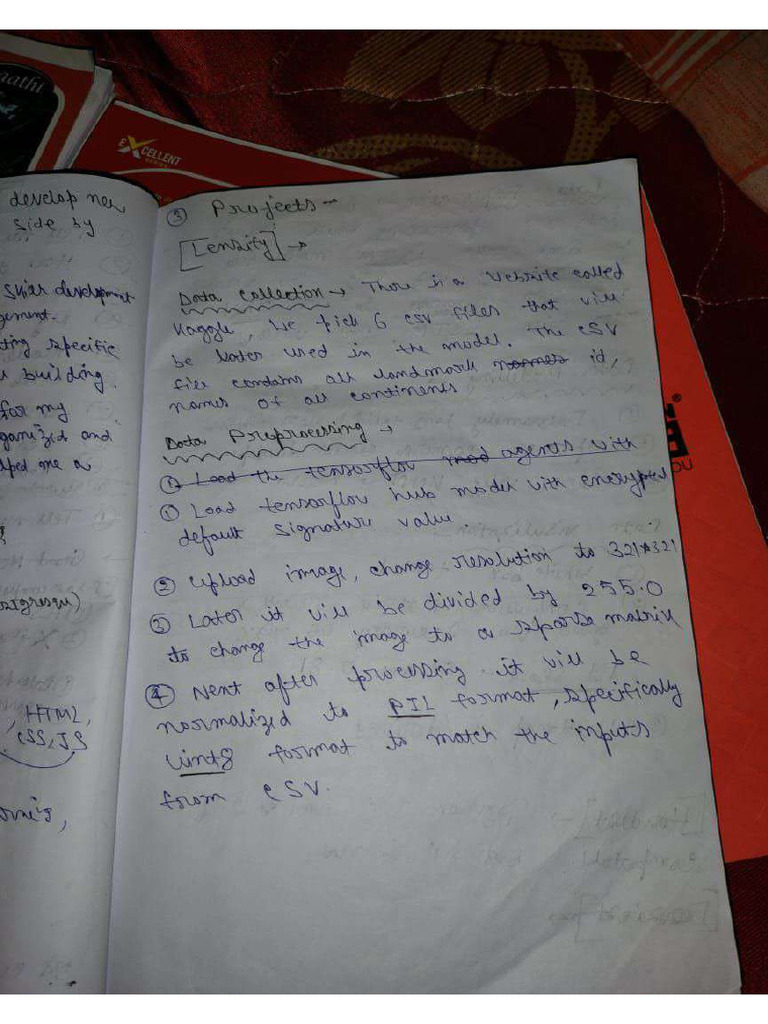 EXCELLENT
develop new
side by
skills development
ting specific
building.
for my
ganized and
lped me a
HTML,
CSS, JS
③ Projects -
[Lensity] →
Data Collection → There is a website called
Kaggle, we pick 6 csv files that will
be later used in the model. The CSV
file contains all landmark names id,
names of all continents
Data Preprocessing →
① Load the tensorflow mod agents with
① Load tensorflow hub model with encrypted
default signature value.
② Upload image, change resolution to 321*321
③ Later it will be divided by 255.0
to change the image to a sparse matrix
④ Next after processing it will be
normalized to PIL format, specifically
uint8 format to match the inputs
from CSV.